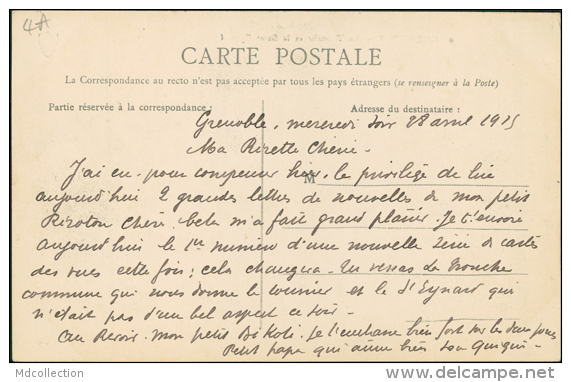 4A
CARTE POSTALE
La Correspondance au recto n'est pas acceptée par tous les pays étrangers (se renseigner à la Poste)
Partie réservée à la correspondance :
Adresse du destinataire :
Grenoble, mercredi soir 28 avril 1915
Ma Rizette Chérie -
J'ai eu, pour compenser hier, le privilège de lire
aujourd'hui 2 grandes lettres de nouvelles de mon petit
Rizoton Chéri. Cela m'a fait grand plaisir. Je t'envoie
aujourd'hui le 1er numéro d'une nouvelle série de cartes
des vues cette fois ; cela changera. Tu verras la
commune qui nous donne le et le St Eynard qui
n'était pas d'un bel aspect ce soir -
Au Revoir. mon petit Je t'embrasse bien fort sur les deux joues
Petit papa qui aime bien son
Mdcollection
www.delcampe.net